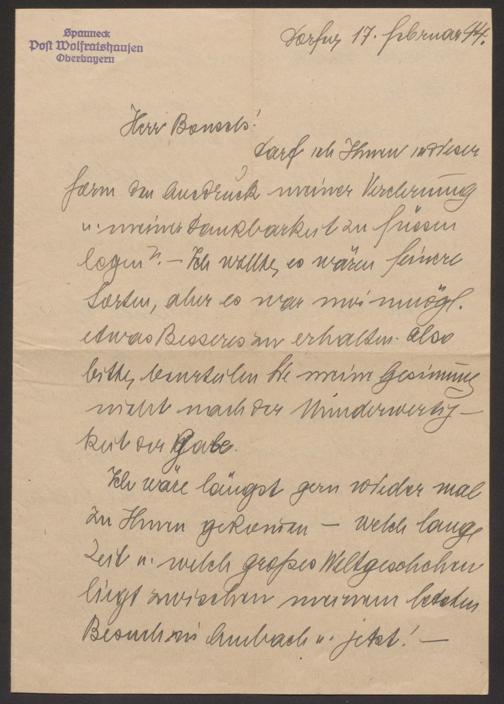 Spanneck
Post Wolfratshausen
Oberbayern
17. Februar 44.
Herr Bonsels!
Darf ich Ihnen in dieser
Form den Ausdruck meiner Verehrung
u. meiner Dankbarkeit zu füssen
legen?. – Ich wollte, es wären feinere
Sorten, aber es war mir unmögl.
etwas Besseres zu erhalten. Also
bitte, beurteilen Sie meine Gesinnung
nicht nach der Minderwertig-
keit der Gabe.
Ich wäre längst gern wieder mal
zu Ihnen gekommen – welch lange
Zeit u. welch großes Weltgeschehen
liegt zwischen meinem letzten
Besuch in Ambach u. jetzt! –